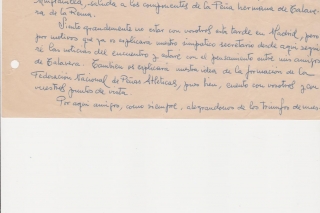 saluda a los componentes de la Peña hermana de Talave-
ra de la Reina.
Siento grandemente no estar con vosotros esta tarde en Madrid, pero
por motivos que ya os explicara nuestro simpatico secretario desde aqui segui-
re las noticias del encuentro y estaré con el pensamiento entre mis amigos
de Talavera. Tambien os explicara nuestra idea de la formacion de la
Federación Nacional de Peñas Atléticas, pues bien, cuento con vosotros y con
vuestros puntos de vista.
Por aqui amigos, como siempre, alegrandonos de los triunfos de